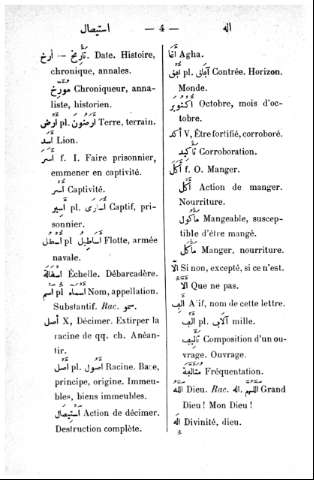 استيصال — 4 — اله
أرخ — تَأْرِيخ. Date. Histoire,
chronique, annales.
مُورِّخ Chroniqueur, anna-
liste, historien.
أَرْض pl. أَرَضُون Terre, terrain.
أَسَد Lion.
أَسَر f. I. Faire prisonnier,
emmener en captivité.
أَسْر Captivité.
أَسِير pl. أَسَارَى Captif, pri-
sonnier.
أُسْطُول pl. أَسَاطِيل Flotte, armée
navale.
Échelle. Débarcadère.
اِسْم pl. أَسْمَاء Nom, appellation.
Substantif. Rac. سمو.
أصل X, Décimer. Extirper la
racine de qq. ch. Anéan-
tir.
أَصْل pl. أُصُول Racine. Base,
principe, origine. Immeu-
bles, biens immeubles.
اِسْتِيصَال Action de décimer.
Destruction complète.
أَغَا Agha.
أُفُق pl. آفَاق Contrée. Horizon.
Monde.
أُكْتُوبِر Octobre, mois d'oc-
tobre.
أكد V, Être fortifié, corroboré.
تَأْكِيد Corroboration.
أَكَل f. O. Manger.
أَكْل Action de manger.
Nourriture.
مَأْكُول Mangeable, suscep-
tible d'être mangé.
مَأْكَل Manger, nourriture.
إِلَّا Si non, excepté, si ce n'est.
أَلَّا Que ne pas.
أَلِف Alif, nom de cette lettre.
أَلْف pl. آلَاف mille.
تَأْلِيف Composition d'un ou-
vrage. Ouvrage.
Fréquentation.
الله Dieu. Rac. اله. اللهم Grand
Dieu ! Mon Dieu !
اله Divinité, dieu.